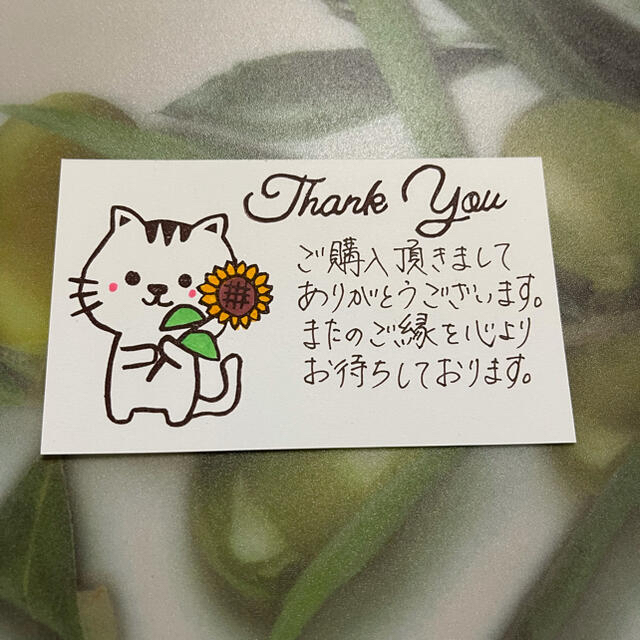 Thank You
ご購入頂きまして
ありがとうございます。
またのご縁を心より
お待ちしております。